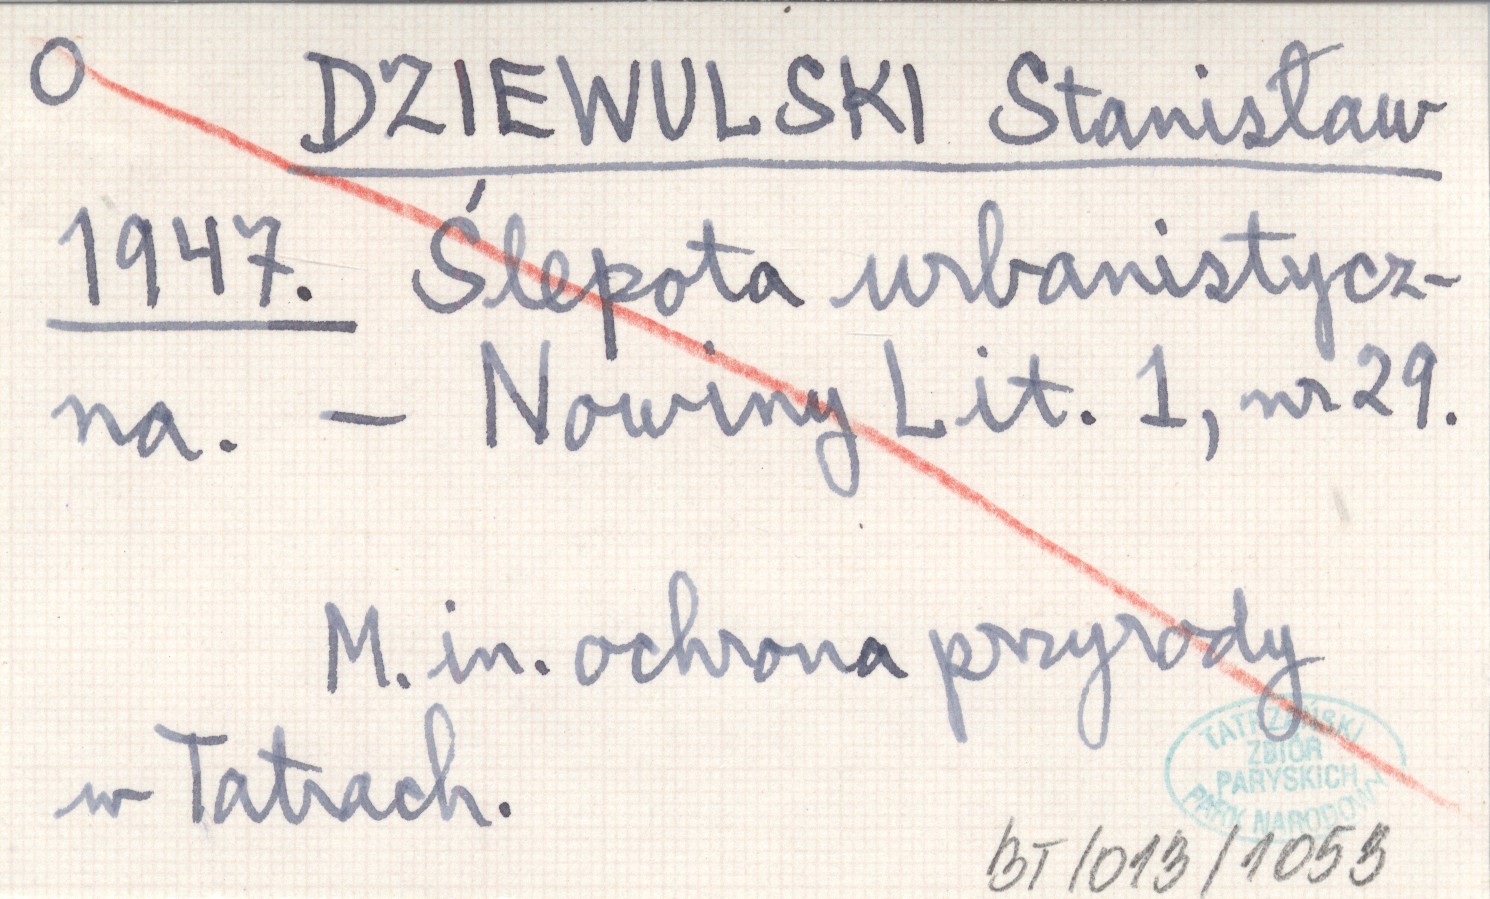 O DZIEWULSKI Stanisław
1947. Ślepota urbanistycz-
na. – Nowiny Lit. 1, nr 29.
M. in. ochrona przyrody
w Tatrach.
TATRZAŃSKI
ZBIÓR
PARYSKICH
PARK NARODOWY
BT/013/1053